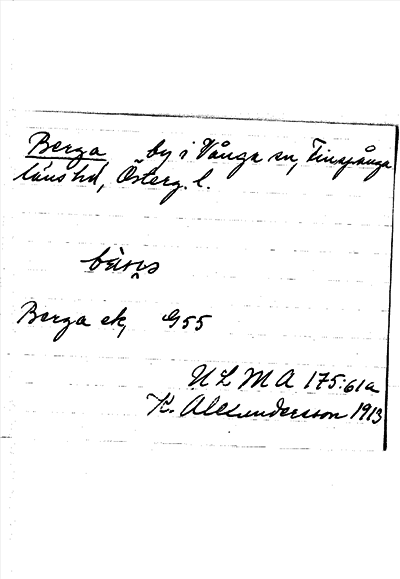 Berga by i Vånga sn, Finspånga
läns hd, Österg. l.
Berga ek, G55
ULMA 175:61a
K. Alexandersson 1913